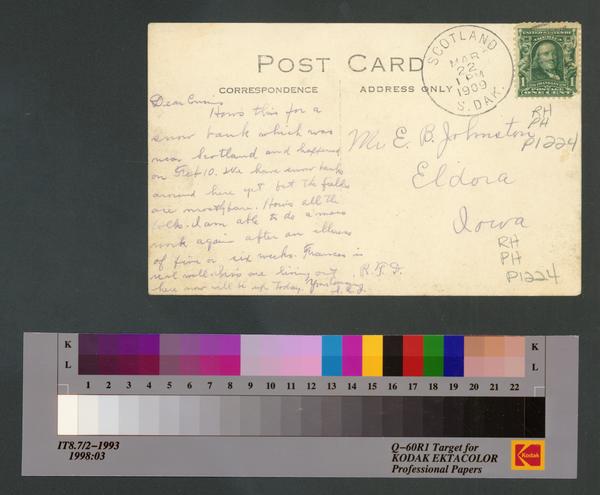 POST CARD
CORRESPONDENCE
ADDRESS ONLY
SCOTLAND
MAR
22
1 PM
1909
S. DAK.
Dear Cousin
Hows this for a
snow bank which was
near Scotland and happened
on Feb 10. We have snow banks
around here yet but the fields
are mostly bare. Hows all the
folks. I am able to do a mans
work again after an illness
of five or six weeks. Frances is
real well are living out
here now will be up today. Your Cousin
R.F.D.
Mr E. B. Johnston
Eldora
Iowa
RH
PH
P1224
RH
PH
P1224
K
L
1 2 3 4 5 6 7 8 9 10 11 12 13 14 15 16 17 18 19 20 21 22
K
L
IT8.7/2–1993
1998:03
Q–60R1 Target for
KODAK EKTACOLOR
Professional Papers
Kodak